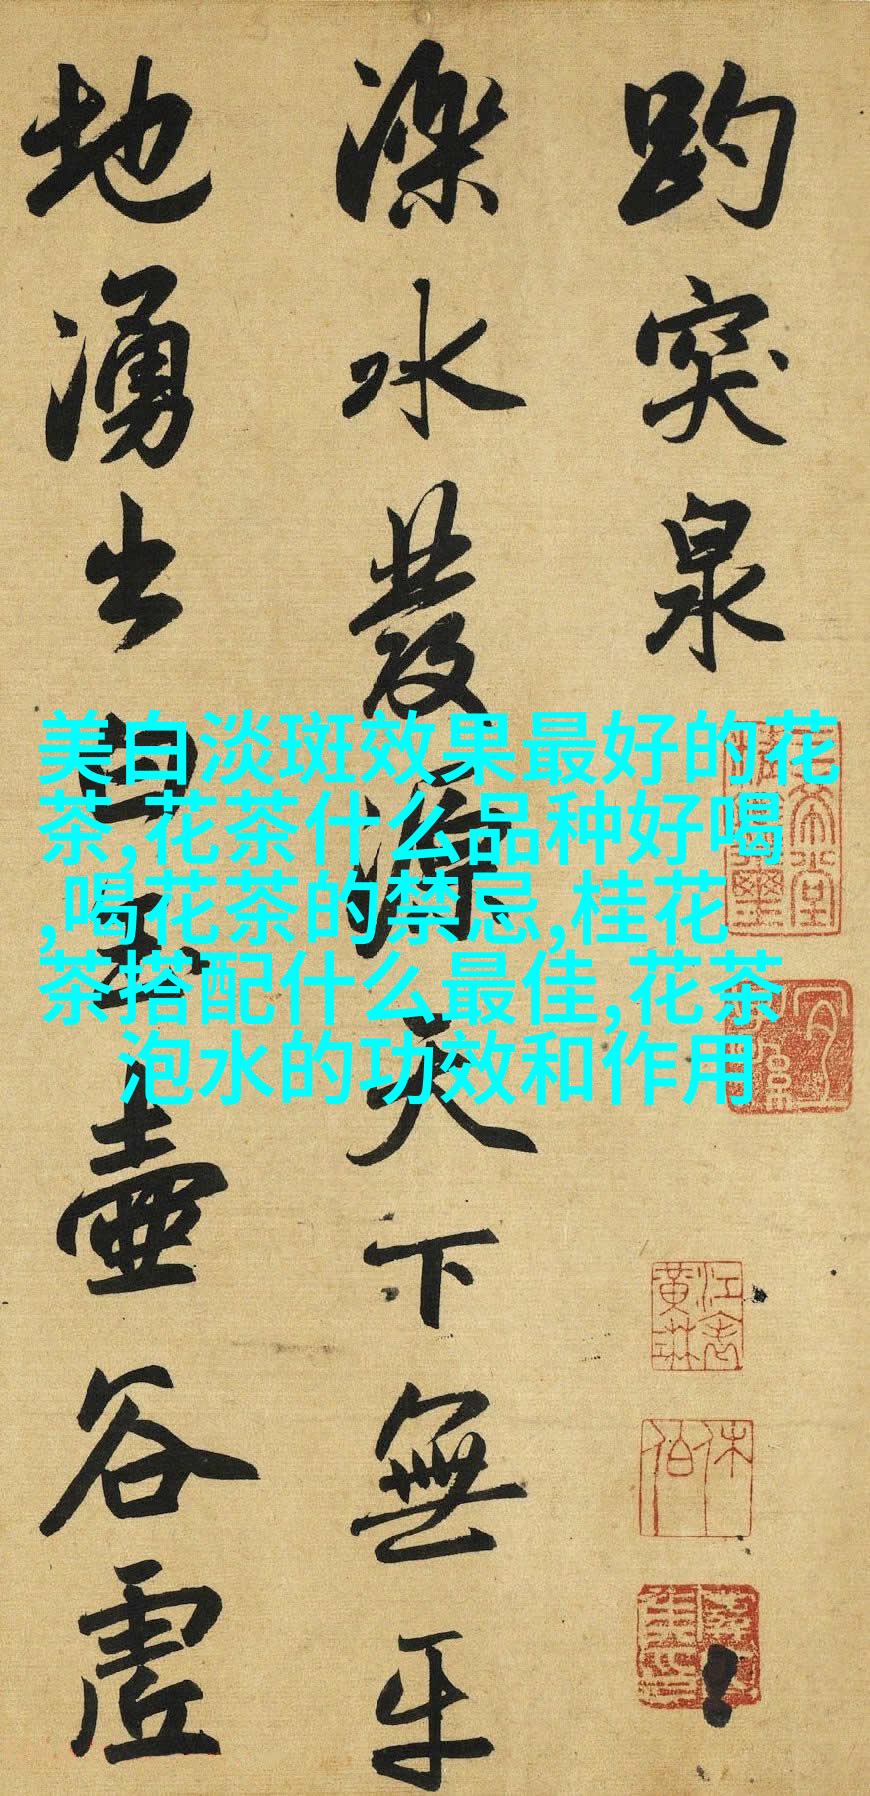 趵突泉
濼水發源天下無平
地湧出白玉壺谷虛
美白淡斑效果最好的花
茶,花茶什么品种好喝
,喝花茶的禁忌,桂花
茶搭配什么最佳,花茶
泡水的功效和作用
江表黃琳
休伯